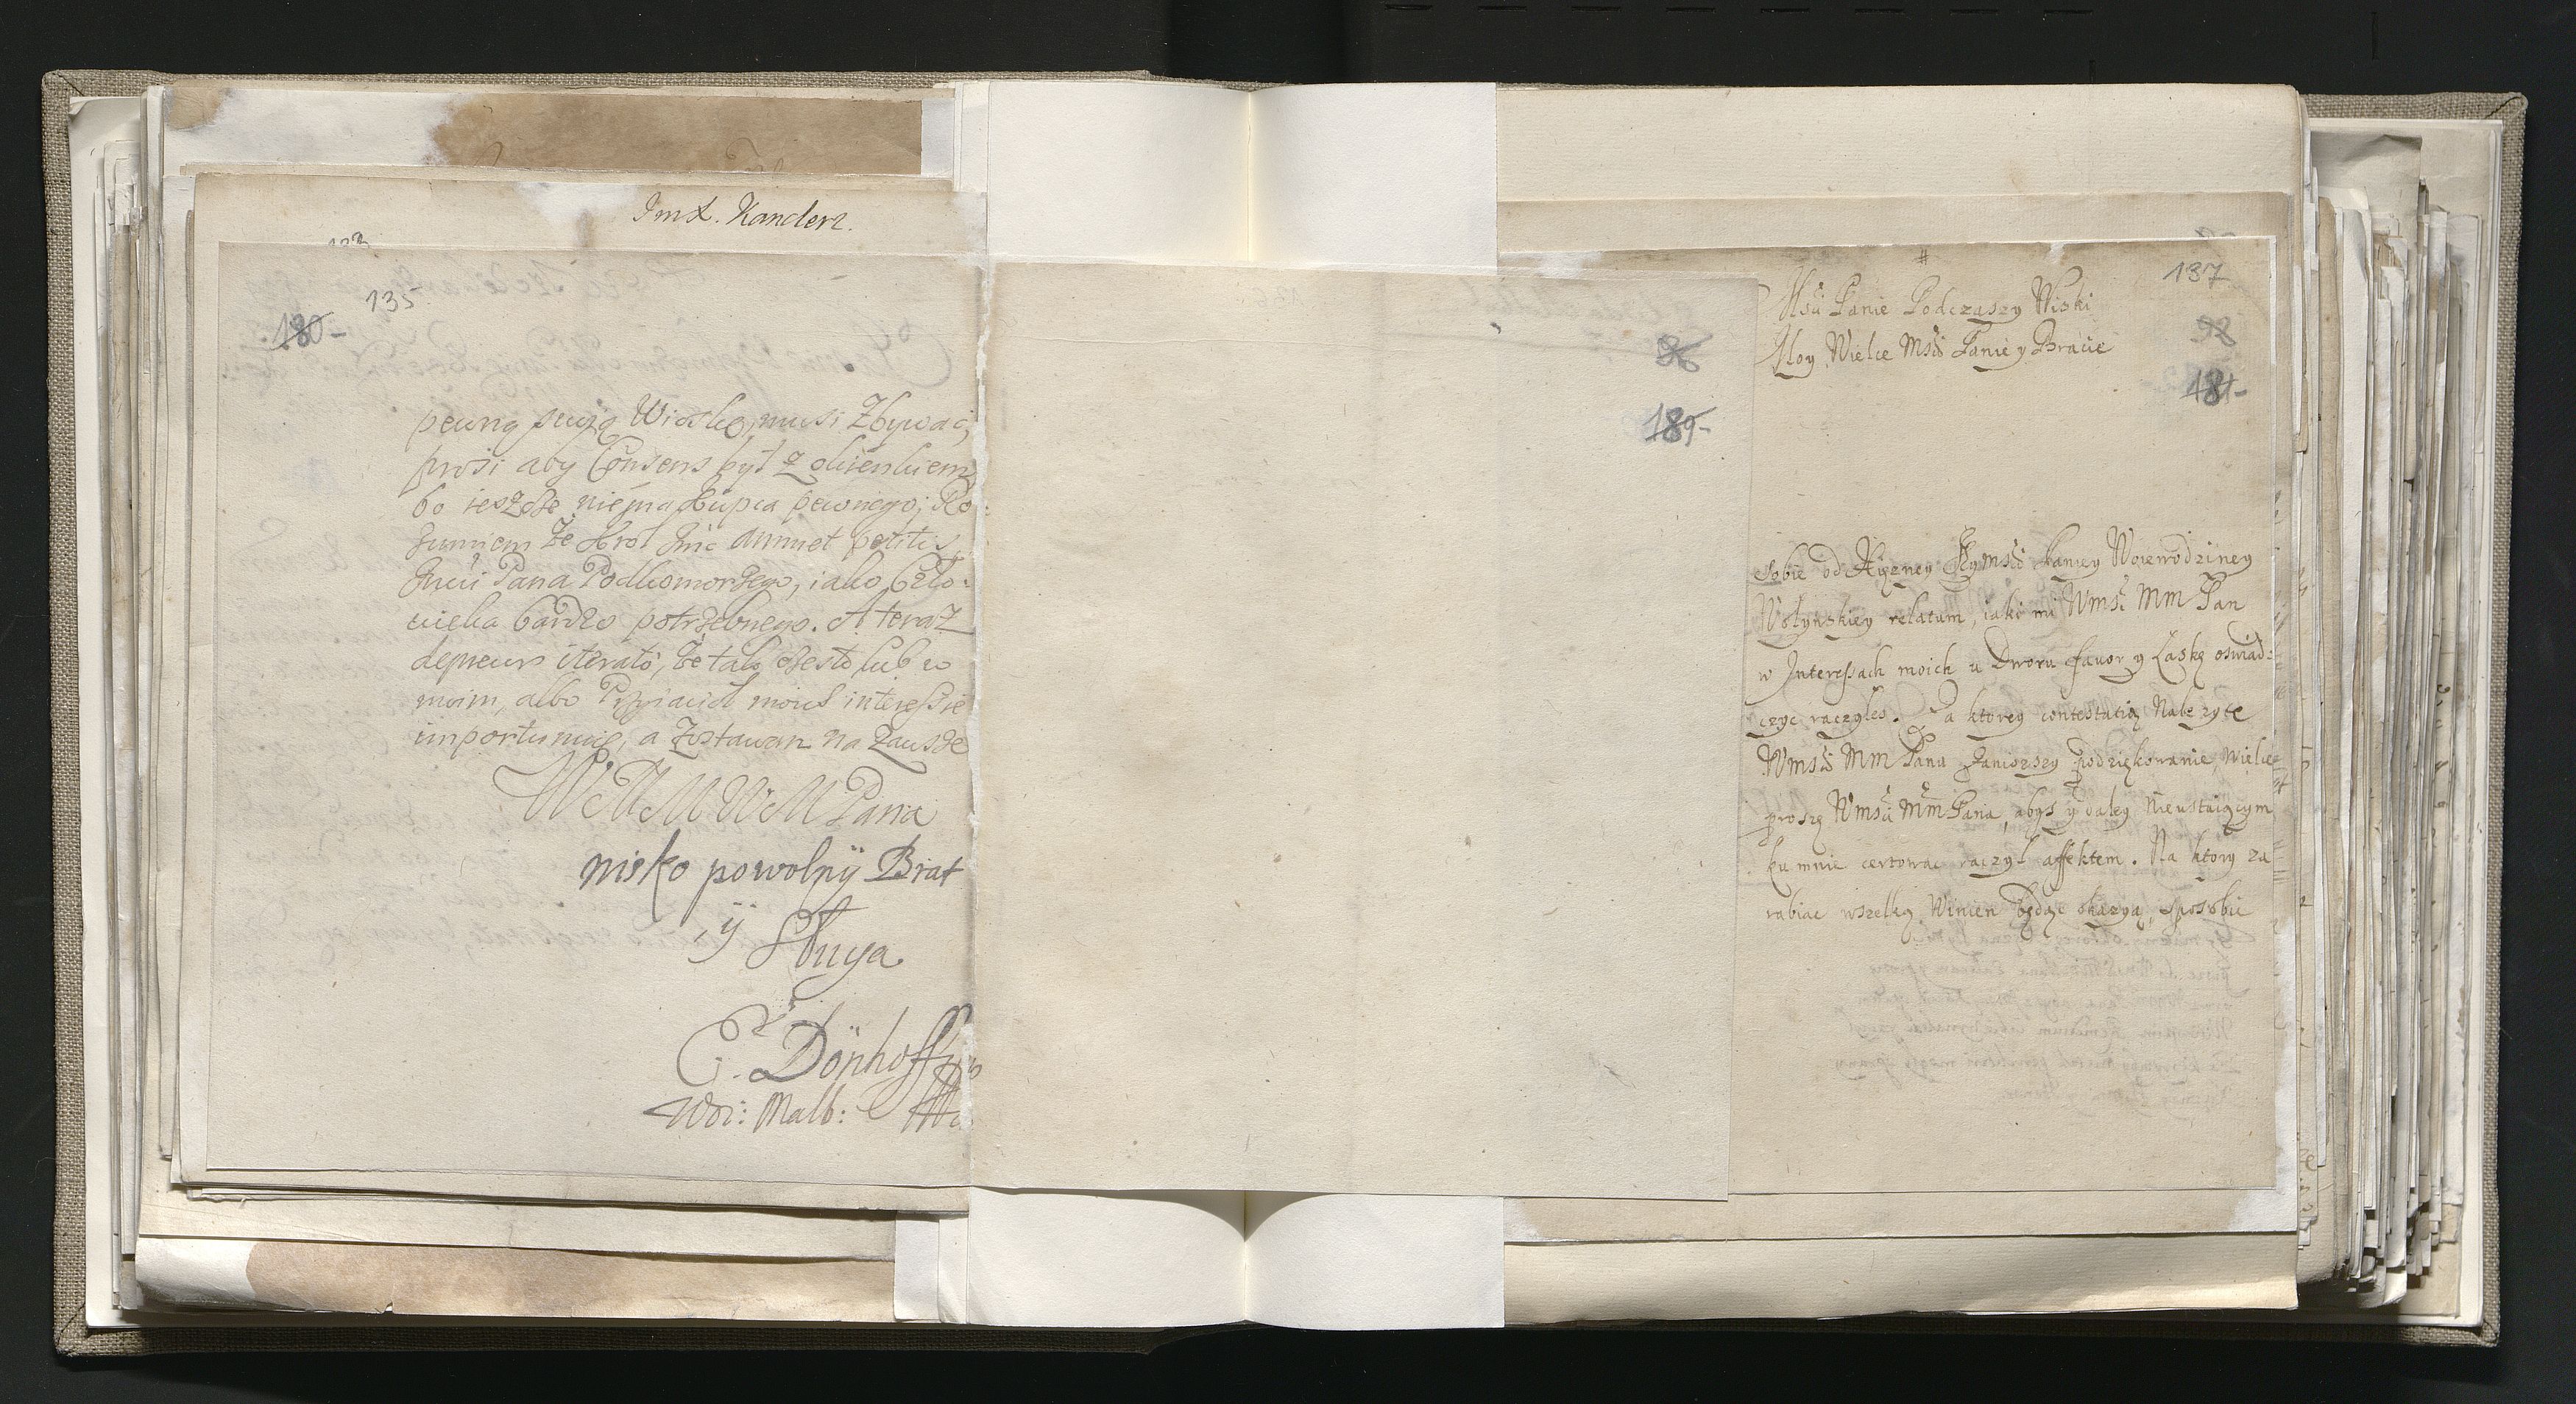 Imx. Kanclerz.
135
180-
pewną swoią Wioskę, musi Zbywać,
prosi aby Consens był z okienkiem
bo ieszcze niema Kupca pewnego; Ro:
zumiem że Krol Jmć annuet petitis
Jmci Pana Podkomorzego, iako Czło:
wieka bardzo potrzebnego. A teraz
deprecor iterato, że tak często lub w
moim, albo Przyiaciół moich interessie
importunuię, a zostawam na zawsze
WMMWMPana
nisko powolnÿ Brat
ÿ Sługa
E. Dönhoff
Woi: Malb:
86
189-
137
92
181-
Msci Panie Podczaszy Wiski
Moy Wielce Msci Panie y Bracie
Sobie od Xiężney Jeymsci Paniey Woiewodziney
Wołynskiey relatum, iako mi Wmsc Mm Pan
w Interessach moich u Dworu favor y Łaskę oswiad:
czyc raczyłes. Za ktorey contestatią Nalezyte
Wmsci Mm Panu Zaniozszy podziękowanie, wielce
proszę Wmsci Mm Pana, abys y daley nieustaiącym
ku mnie certowac raczył affektem. Na ktory za
rabiac wszelką Winien będąc okazyą, sposobie